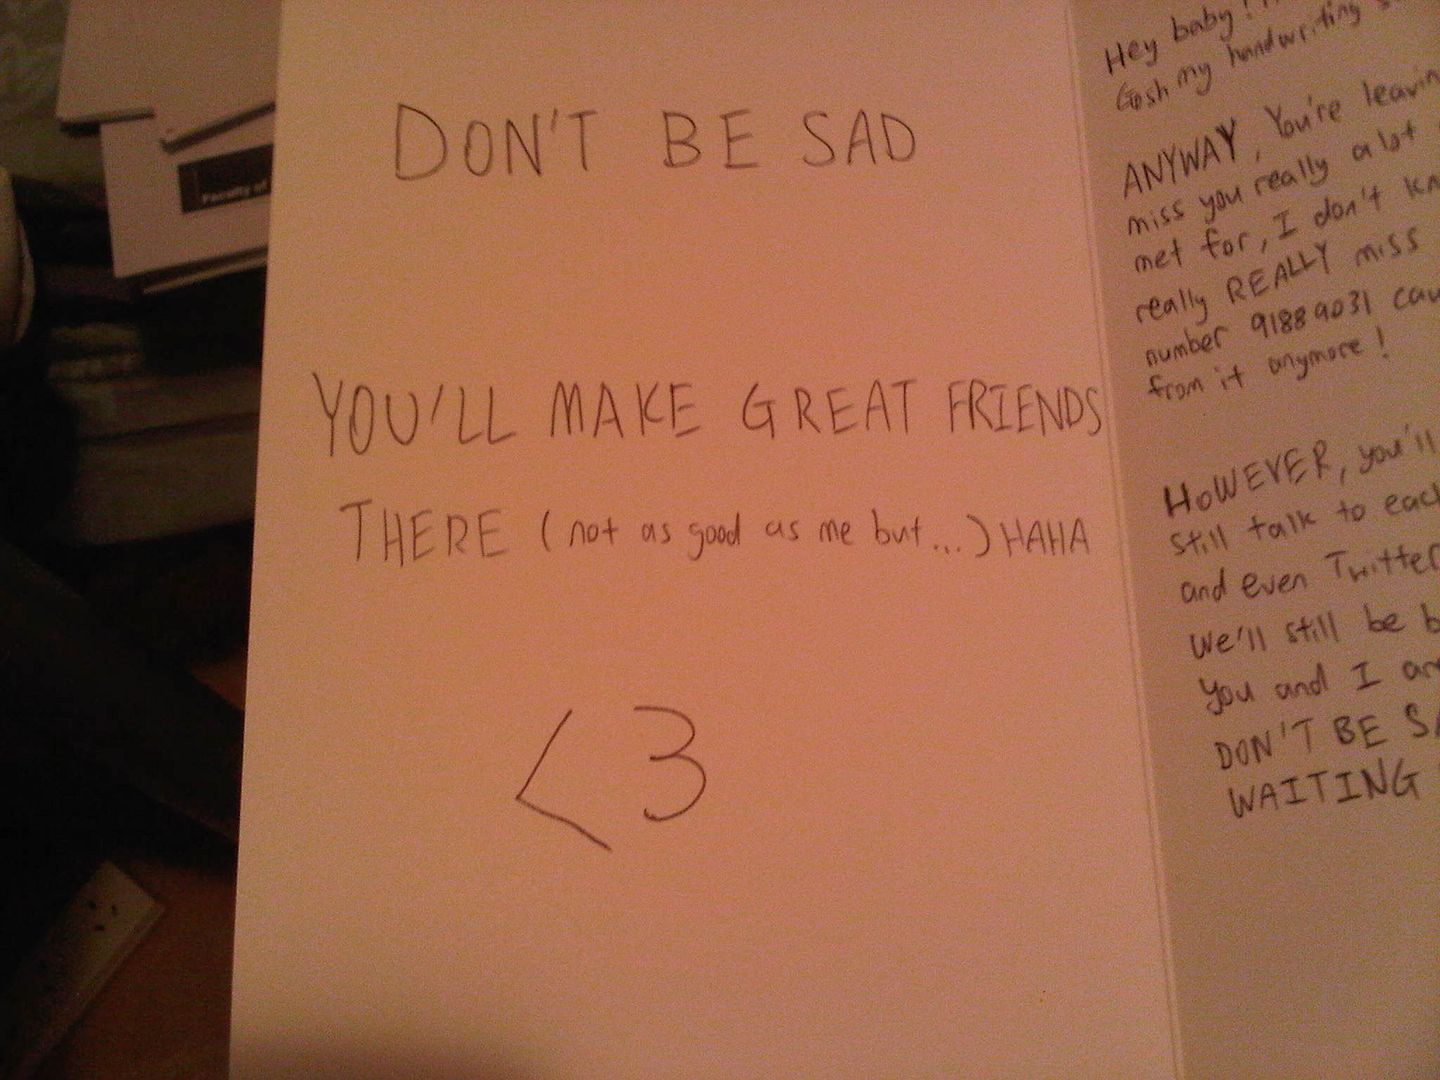 Faculty of
DON'T BE SAD
YOU'LL MAKE GREAT FRIENDS
THERE (not as good as me but...) HAHA
<3
Hey baby!
Gosh my handwriting
ANYWAY, You're
miss you really a lot
met for, I don't
really REALLY miss
number 91889031
from it anymore!
HOWEVER, you'll
still talk to
and even Twitter
We'll still be
you and I
DON'T BE
WAITING